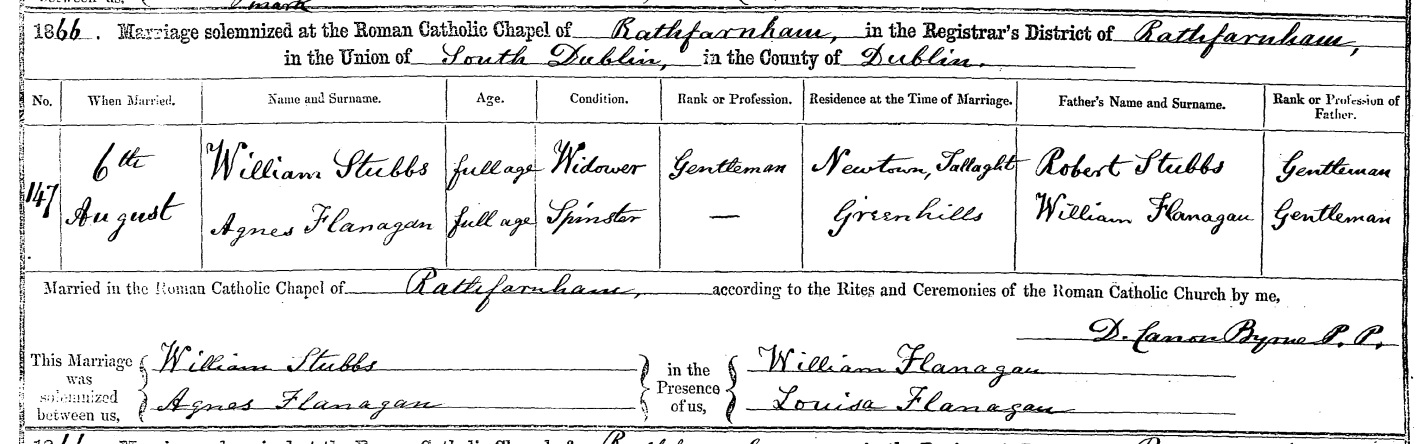 mark
1866. Marriage solemnized at the Roman Catholic Chapel of Rathfarnham, in the Registrar's District of Rathfarnham,
in the Union of South Dublin, in the County of Dublin.
No. When Married. Name and Surname. Age. Condition. Rank or Profession. Residence at the Time of Marriage. Father's Name and Surname. Rank or Profession of Father.
147 6th August William Stubbs full age Widower Gentleman Newtown, Tallaght Robert Stubbs Gentleman
Agnes Flanagan full age Spinster — Greenhills William Flanagan Gentleman
Married in the Roman Catholic Chapel of Rathfarnham, according to the Rites and Ceremonies of the Roman Catholic Church by me,
D. Canon Byrne P. P.
This Marriage was solemnized between us, William Stubbs in the Presence of us, William Flanagan
Agnes Flanagan Louisa Flanagan